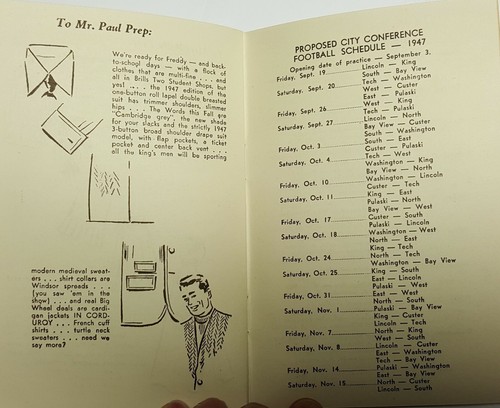 To Mr. Paul Prep:
We're ready for Freddy — and back-
to-school days — with a flock of
clothes that are multi-fine . . . and
all in Brills Two Student Shops, but
yes! . . . the 1947 edition of the
one-button roll lapel double breasted
suit has trimmer shoulders, slimmer
hips . . . The Words this Fall are
"Cambridge grey", the new shade
for your slacks and the strictly 1947
3-button broad shoulder drape suit
model, with flap pockets, a ticket
pocket and center back vent . . .
all the king's men will be sporting
modern medieval sweat-
ers . . . shirt collars are
Windsor spreads . . .
(you saw 'em in the
show) . . . and real Big
Wheel deals are cardi-
gan jackets IN CORD-
UROY . . . French cuff
shirts . . . turtle neck
sweaters . . . need we
say more?
PROPOSED CITY CONFERENCE
FOOTBALL SCHEDULE — 1947
Opening date of practice — September 3.
Friday, Sept. 19 Lincoln — King
South — Bay View
Saturday, Sept. 20 Tech — Washington
West — Custer
East — Pulaski
Friday, Sept. 26 West — King
Pulaski — Tech
Saturday, Sept. 27 Lincoln — North
Bay View — Custer
South — Washington
Friday, Oct. 3 South — East
Custer — Pulaski
Saturday, Oct. 4 Tech — West
Washington — King
Bay View — North
Friday, Oct. 10 Washington — Lincoln
Custer — Tech
Saturday, Oct. 11 King — East
Pulaski — North
Bay View — West
Friday, Oct. 17 Custer — South
Saturday, Oct. 18 Washington — West
North — East
King — Tech
Friday, Oct. 24 North — Tech
Washington — Bay View
Saturday, Oct. 25 King — South
East — Lincoln
Pulaski — West
Friday, Oct. 31 East — West
North — South
Saturday, Nov. 1 Pulaski — Bay View
King — Custer
Lincoln — Tech
Friday, Nov. 7 North — King
West — South
Saturday, Nov. 8 Lincoln — Custer
East — Washington
Tech — Bay View
Friday, Nov. 14 Pulaski — Washington
East — Bay View
Saturday, Nov. 15 North — Custer
Lincoln — South